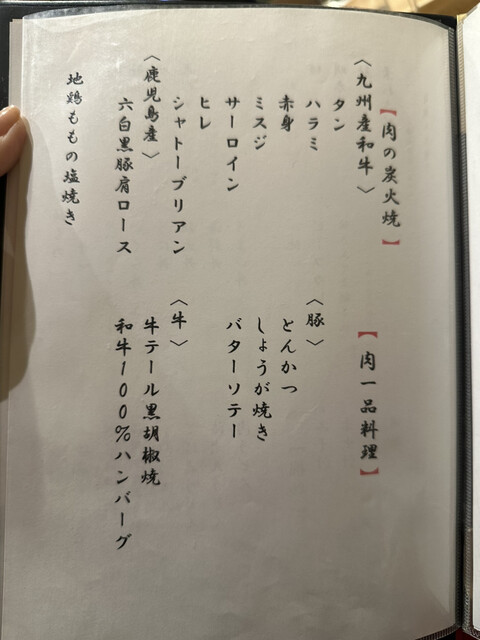 【肉の炭火焼】
〈九州産和牛〉
タン
ハラミ
赤身
ミスジ
サーロイン
ヒレ
シャトーブリアン
〈鹿児島産〉
六白黒豚肩ロース
地鶏ももの塩焼き
【肉一品料理】
〈豚〉
とんかつ
しょうが焼き
バターソテー
〈牛〉
牛テール黒胡椒焼
和牛100%ハンバーグ